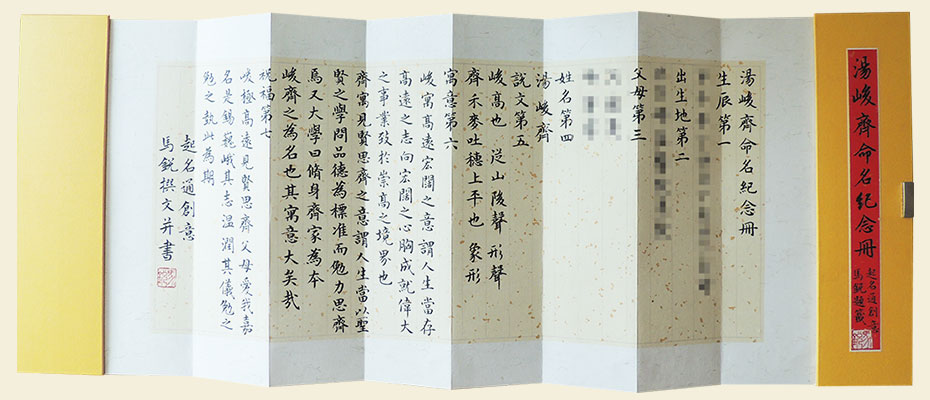 湯峻齊命名紀念冊
起名通創意
馬銳題籤
湯峻齊命名紀念冊
生辰第一
出生地第二
父母第三
姓名第四
湯峻齊
説文第五
峻高也 从山陖聲 形聲
齊 禾麥吐穗上平也 象形
寓意第六
峻寓高遠宏闊之意謂人生當存
高遠之志向宏闊之心胸成就偉大
之事業致於崇高之境界也
齊寓見賢思齊之意謂人生當以聖
賢之學問品德為標准而勉力思齊
焉又大學曰脩身齊家為本
峻齊之為名也其寓意大矣哉
祝福第七
峻極高遠見賢思齊父母愛我嘉
名是錫巍峨其志溫潤其儀勉之
勉之執此為期
起名通創意
馬銳撰文并書